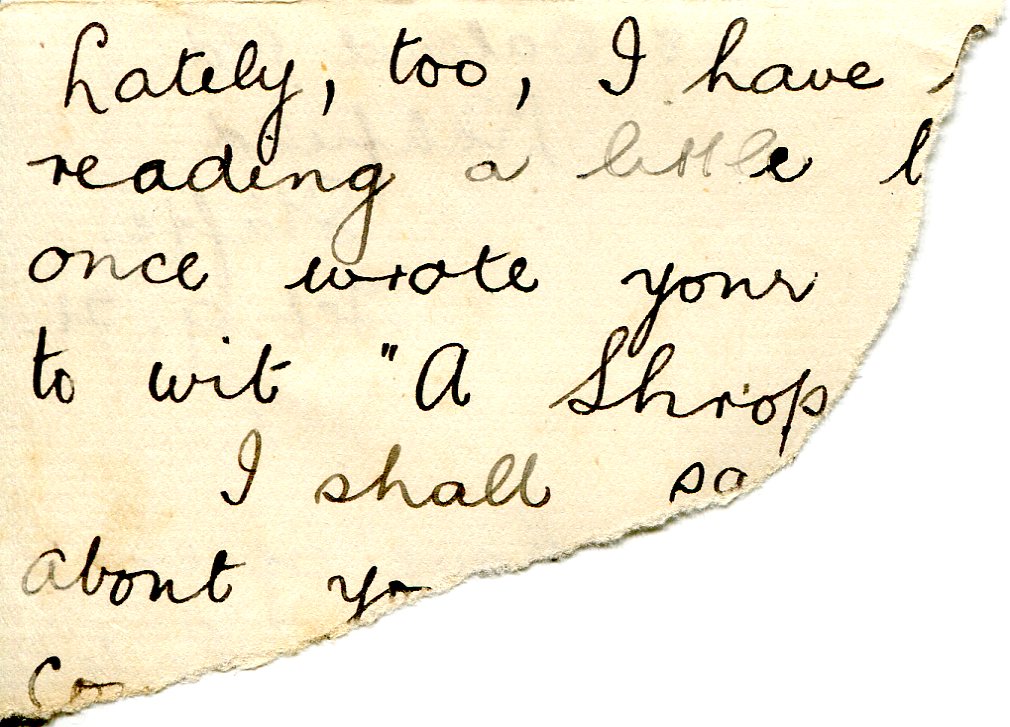 Lately, too, I have
reading a little
once wrote your
to wit "A Shrop
I shall sa
about yo
Co